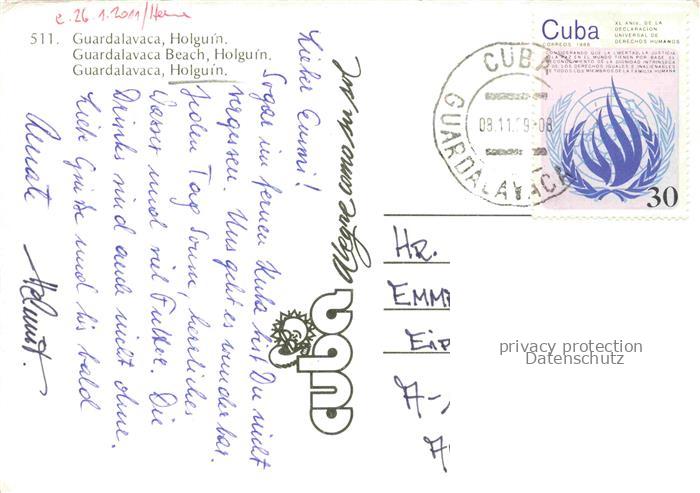 e. 26.1.2011/
511. Guardalavaca, Holguín.
Guardalavaca Beach, Holguín.
Guardalavaca, Holguín.
Lieber Emmi!
Sogar im fernen Kuba bist Du nicht
vergessen. Uns geht es wunderbar.
Jeden Tag Sonne, herrliches
Wasser und viel Futter. Die
Drinks sind auch nicht ohne.
Liebe Grüße und bis bald
Renate
Helmut.
cuba
Cuba
CORREOS 1988
XL ANIV. DE LA
DECLARACION
UNIVERSAL DE
DERECHOS HUMANOS
CONSIDERANDO QUE LA LIBERTAD, LA JUSTICIA
Y LA PAZ EN EL MUNDO TIENEN POR BASE EL
RECONOCIMIENTO DE LA DIGNIDAD INTRINSECA
Y DE LOS DERECHOS IGUALES E INALIENABLES
DE TODOS LOS MIEMBROS DE LA FAMILIA HUMANA
30
CUBA
08.11.89-08
GUARDALAVACA
HR.
EMM
A-
privacy protection
Datenschutz